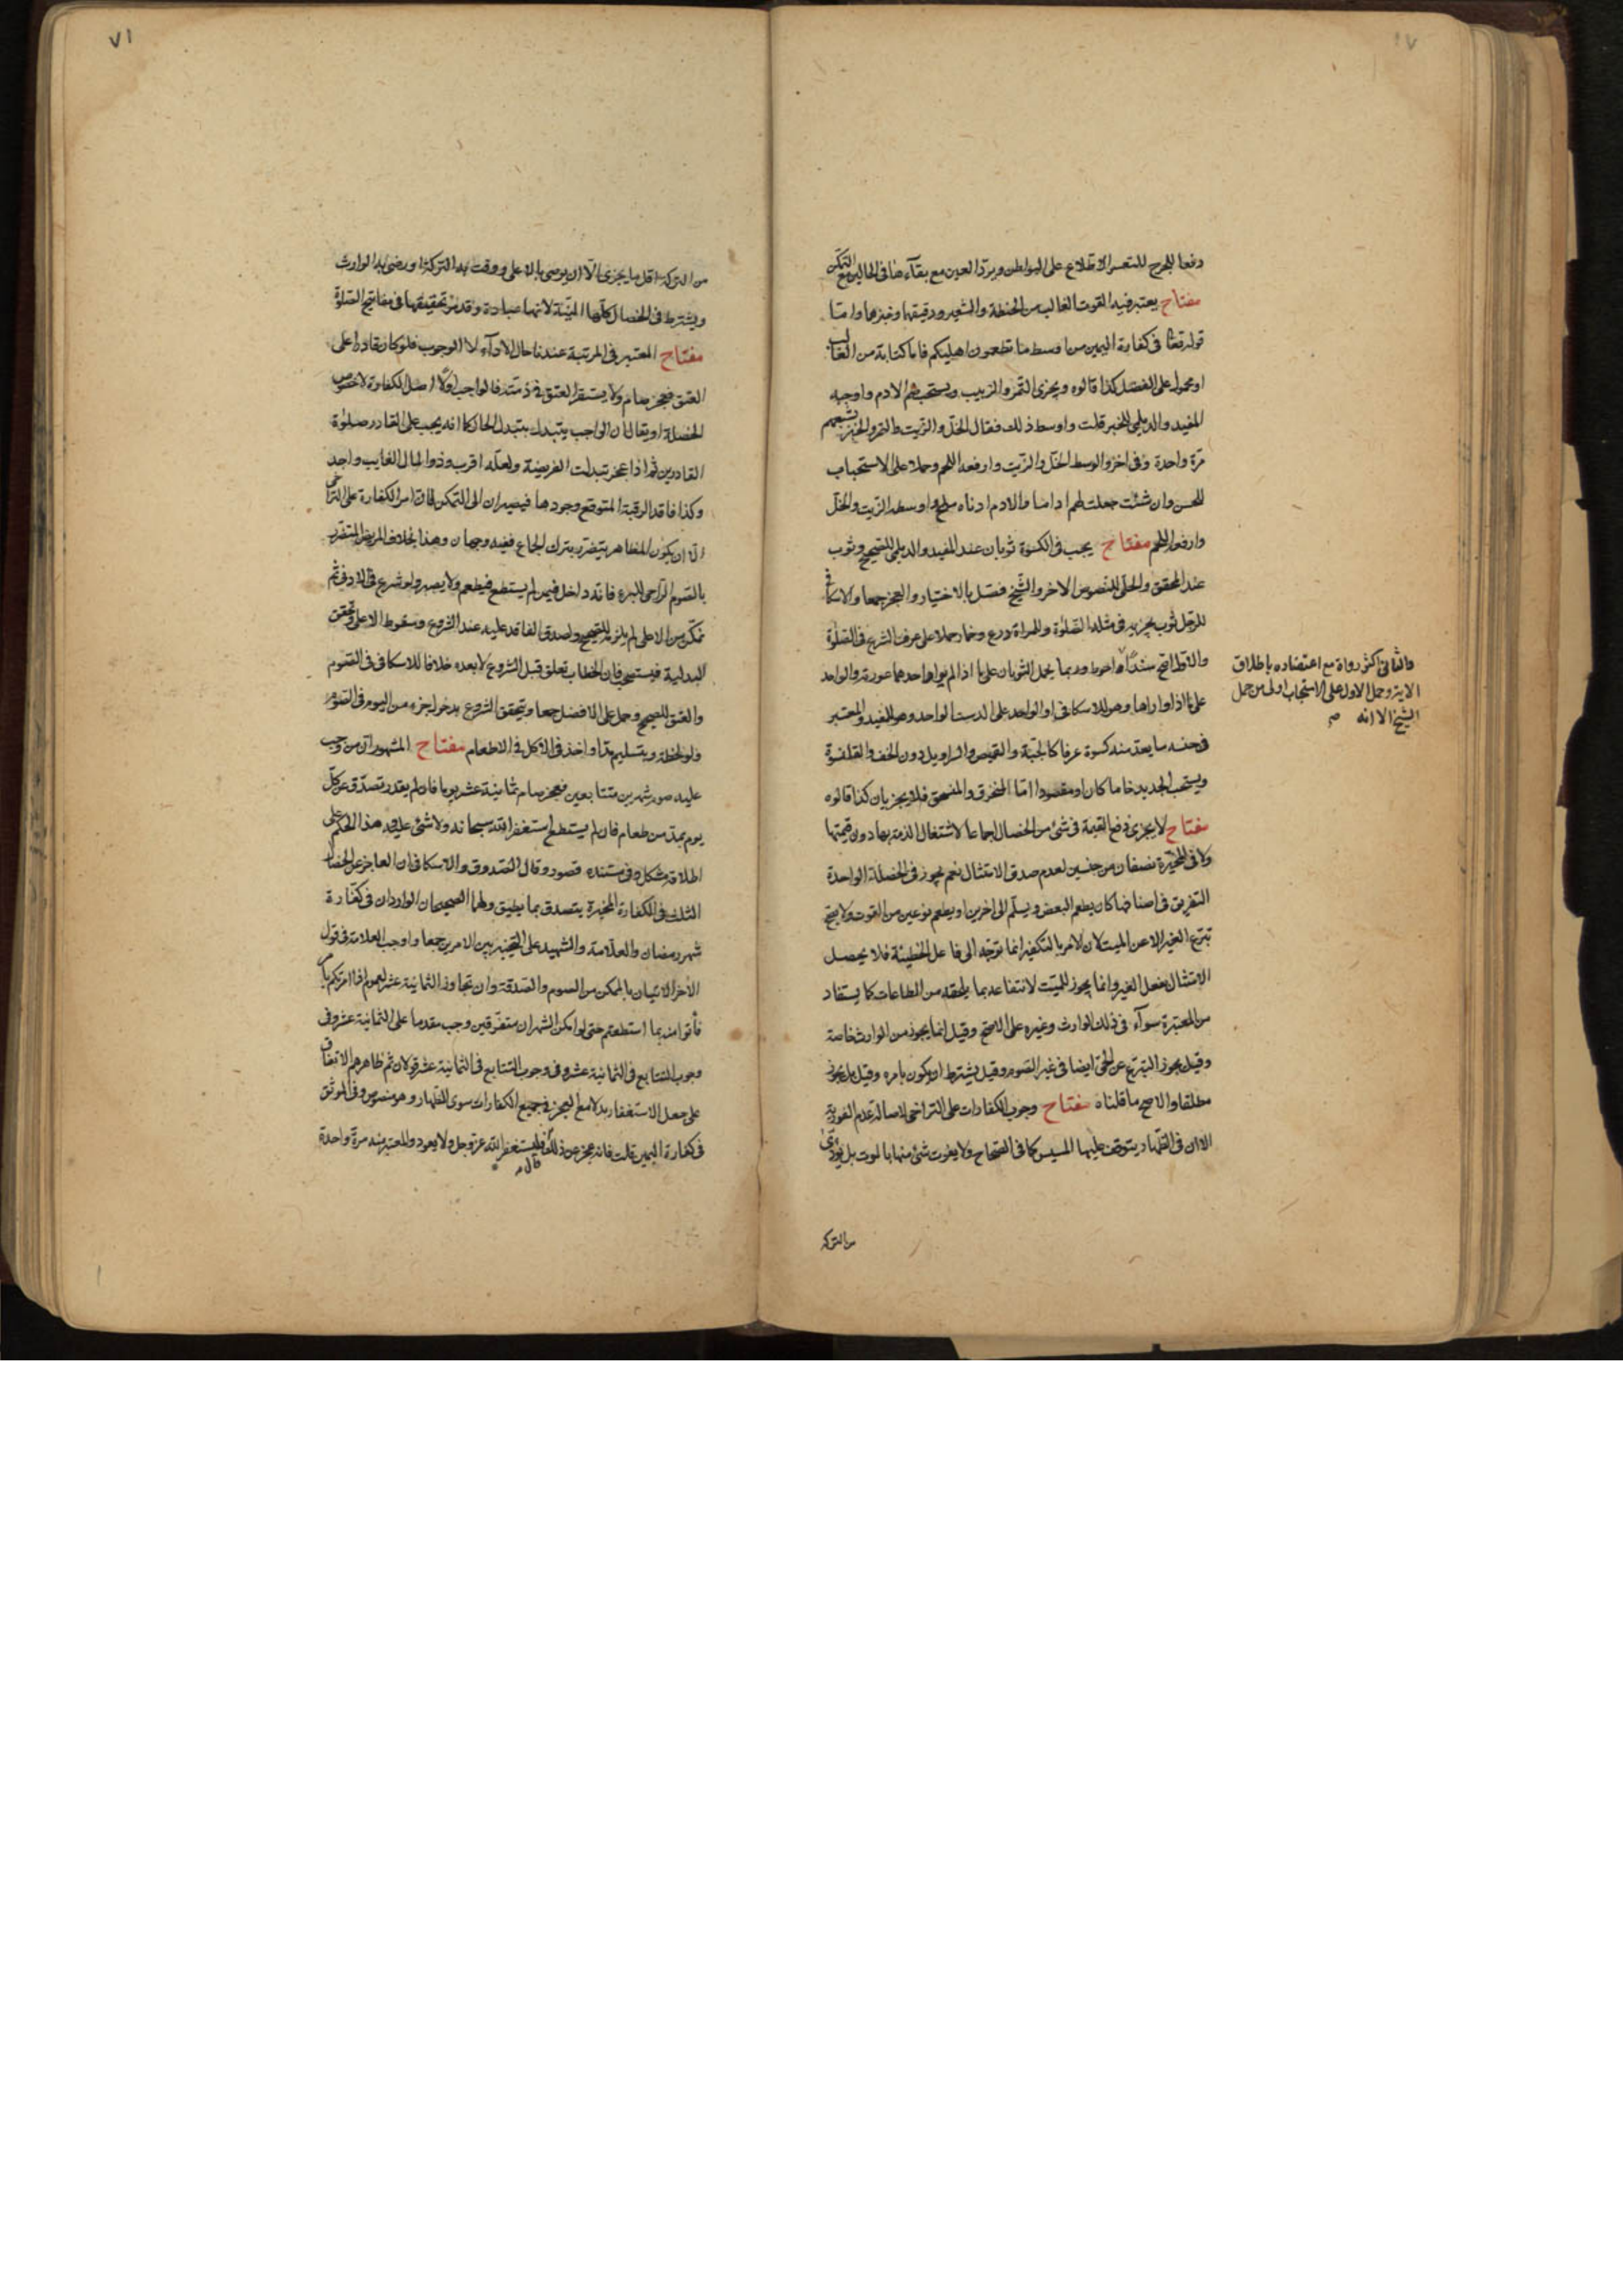 دفعا للحرج للتعسر الاطلاع على البواطن ويرد العين مع بقاءها فى الحالين مع التمكن
مفتاح يعتبر فيه القوت الغالب من الحنطة والشعير ودقيقهما وخبزهما واما
قوله تعالى فى كفارة اليمين من اوسط ما تطعمون اهليكم فاما كناية من الغالب
او محمول على الفضل كذا قالوه ويجزى التمر والزبيب ويستحب ضم الادم واوجبه
المفيد والديلمى للخبر قلت واوسط ذلك فقال الخل والزيت والتمر والخبز يشبعهم
مرة واحدة وفى اخر والوسط الخل والزيت وارفعه اللحم وحملا على الاستحباب
للحسن وان شئت جعلت لهم اداما والادم ادناه ملح واوسطه الزيت والخل
وارفعه اللحم مفتاح يجب فى الكسوة ثوبان عند المفيد والديلمى للصحيح وثوب
عند المحقق والحلى للنصوص الاخر والشيخ فصل بالاختيار والعجز جمعا والاسكافى
للرجل ثوب يجزيه فى مثله الصلوة والمراة درع وخمار حملا على عرف الشرع فى الصلوة
والاول اصح سندا احوط وربما يحمل الثوبان على ما اذا لم يوار احدهما عورته والواحد
على ما اذا واراها وهو للاسكافى او الواحد على الدست الواحد وهو للمفيد والمعتبر
فى جنسه ما يعد منه كسوة عرفا كالجبة والقميص والسراويل دون الخف والقلنسوة
ويستحب الجديد خاما كان او مقصورا اما المنخرق والمنسحق فلا يجزيان كذا قالوه
مفتاح لا يجزى دفع القيمة فى شئ من الخصال اجماعا لاشتغال الذمة بها دون قيمتها
ولا فى المخيرة نصفان من جنسين لعدم صدق الامتثال نعم يجوز فى الخصلة الواحدة
التفريق فى اصنافها كان يطعم البعض ويسلم الى اخرين او يطعم نوعين من القوت ولا يصح
تبرع الغير الا عن الميت لان الامر بالتكفير انما توجه الى فاعل الخطيئة فلا يحصل
الامتثال بفعل الغير وانما يجوز للميت لانتفاعه بما يلحقه من الطاعات كما يستفاد
من المعتبرة سواء فى ذلك الوارث وغيره على الاصح وقيل انما يجوز من الوارث خاصة
وقيل يجوز التبرع عن الحى ايضا فى غير الصوم وقيل يشترط ان يكون بامره وقيل بل يجوز
مطلقا والاصح ما قلناه مفتاح وجوب الكفارات على التراخى لاصالة عدم الفورية
الا ان فى الظهار يتوقف عليها المسيس كما فى الصحاح ولا يفوت شئ منها بالموت بل يؤدى
من التركة
والثانى اكثر رواة مع اعتضاده باطلاق
الاية وحمل الاول على الاستحباب اولى من حمل
الشيخ الا انه
٧١
من التركة اقل ما يجزى الا ان يوصى بالاعلى ووفت به التركة او رضى به الوارث
ويشترط فى الخصال كلها النية لانها عبادة وقد مر تحقيقها فى مفاتيح الصلوة
مفتاح المعتبر فى المرتبة عندنا حال الاداء لا الوجوب فلو كان قادرا على
العتق فعجز صام ولا يستقر العتق فى ذمته فالواجب اولا اصل الكفارة لا خصوص
الخصلة او يقال ان الواجب يتبدل بتبدل الحال كما انه يجب على القادر صلوة
القادرين ثم اذا عجز تبدلت الفريضة ولعله اقرب وذو المال الغايب واجد
وكذا فاقد الرقبة المتوقع وجودها فيصبران الى التمكن فان امر الكفارة على التراخى
الا ان يكون المظاهر يتضرر بترك الجماع ففيه وجهان وهذا بخلاف المريض المتضرر
بالصوم الراجى للبرء فانه داخل فيمن لم يستطع فيطعم ولا يصبر ولو شرع فى الادنى ثم
تمكن من الاعلى لم يلزمه للصحيح ولصدق الفاقد عليه عند الشروع وسقوط الاعلى وتحقق
البدلية فيستصحب فان الخطاب تعلق قبل الشروع لا بعده خلافا للاسكافى فى الصوم
والعتق للصحيح وحمل على الافضل جمعا ويتحقق الشروع بدخول جزء من اليوم فى الصوم
ولو لحظة وبتسليم مد او اخذ فى الاكل فى الاطعام مفتاح المشهور ان من وجب
عليه صوم شهرين متتابعين فعجز صام ثمانية عشر يوما فان لم يقدر تصدق عن كل
يوم بمد من طعام فان لم يستطع استغفر الله سبحانه ولا شئ عليه وهذا الحكم على
اطلاقه مشكل وفى مستنده قصور وقال الصدوق والاسكافى ان العاجز عن الخصال
الثلث فى الكفارة المخيرة يتصدق بما يطيق ولهما الصحيحان الواردان فى كفارة
شهر رمضان والعلامة والشهيد على التخيير بين الامرين جمعا واوجب العلامة فى قول
الاخر الاتيان بالممكن من الصوم والصدقة وان تجاوز الثمانية عشر لعموم اذا امرتكم بامر
فأتوا منه بما استطعتم حتى لو امكن الشهران متفرقين وجب مقدما على الثمانية عشر وفى
وجوب التتابع فى الثمانية عشر وفى وجوب التتابع فى الثمانية عشر قولان ثم ظاهرهم الاتفاق
على جعل الاستغفار بدلا مع العجز فى جميع الكفارات سوى الظهار وهو منصوص وفى الموثق
فى كفارة اليمين قلت فانه عجز عن ذلك قال فليستغفر الله عز وجل ولا يعود والمعتبر منه مرة واحدة